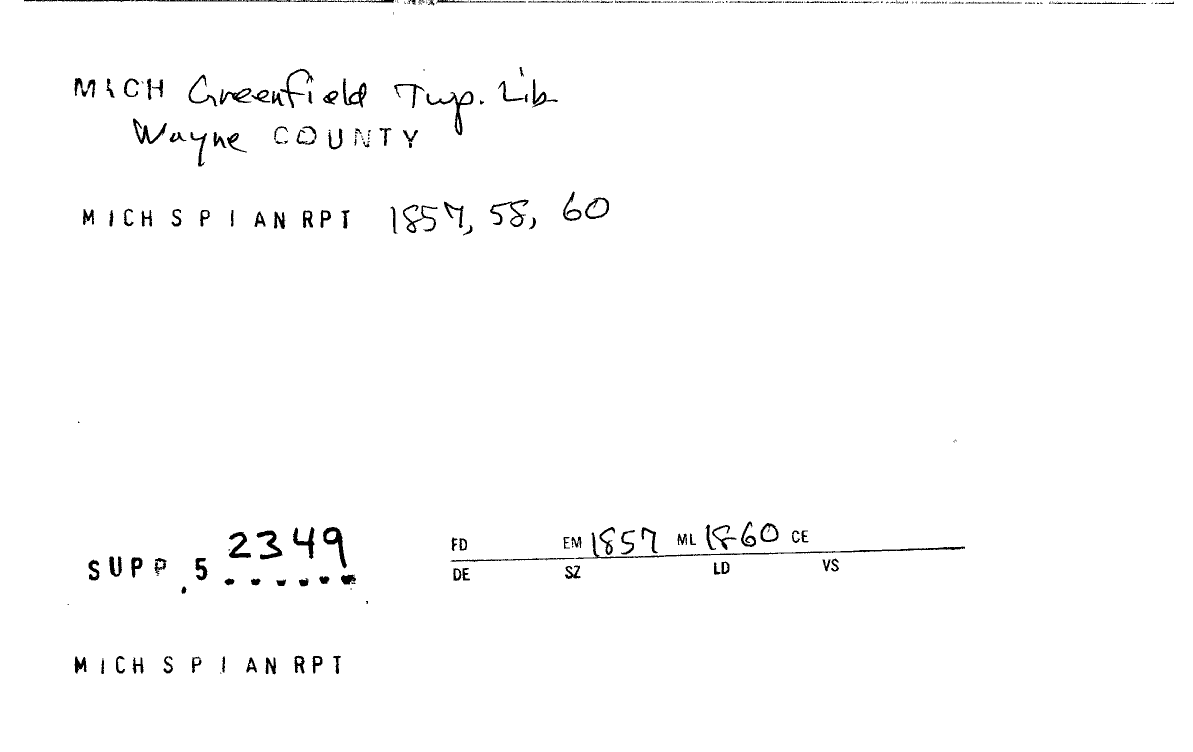 MICH Greenfield Twp. Lib
Wayne COUNTY
MICH S P I AN RPT 1857, 58, 60
2349
SUPP. 5 ......
FD EM 1857 ML 1860 CE
DE SZ LD VS
MICH S P I AN RPT